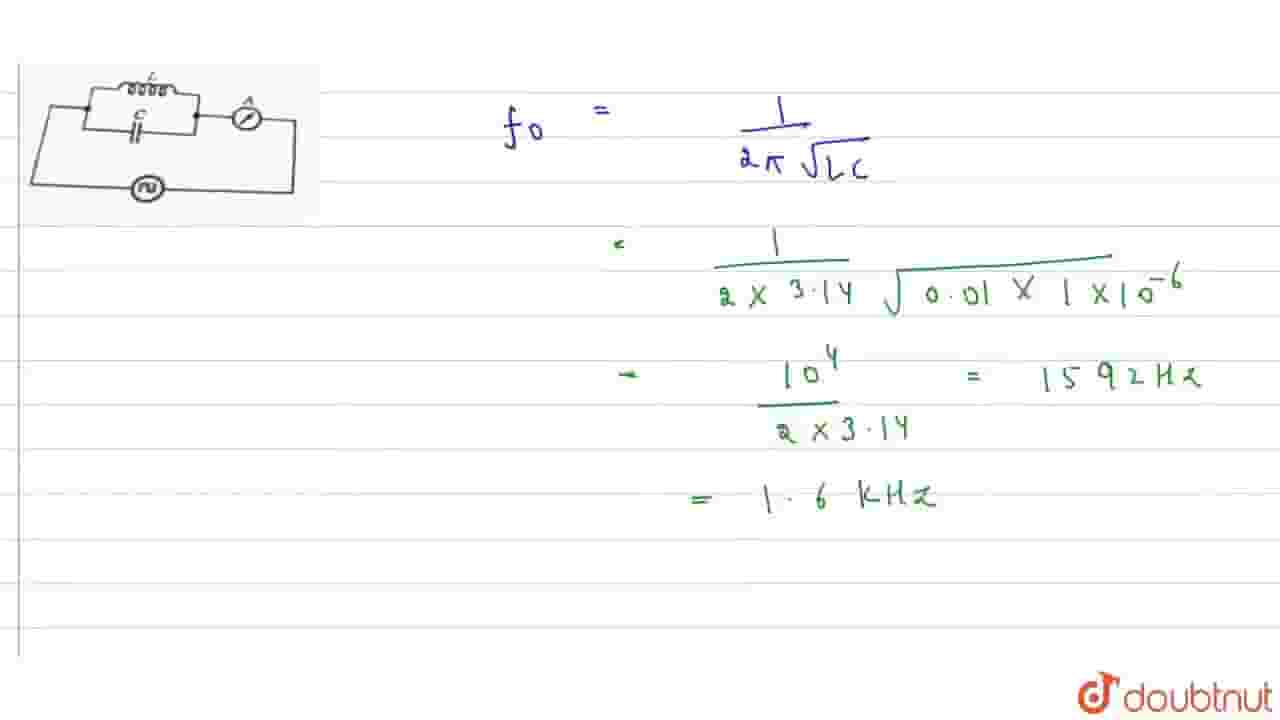 L
C
A
f0 = 1 / 2π √LC
= 1 / 2 × 3.14 √0.01 × 1 × 10⁻⁶
= 10⁴ / 2 × 3.14 = 1592 Hz
= 1.6 KHz
doubtnut